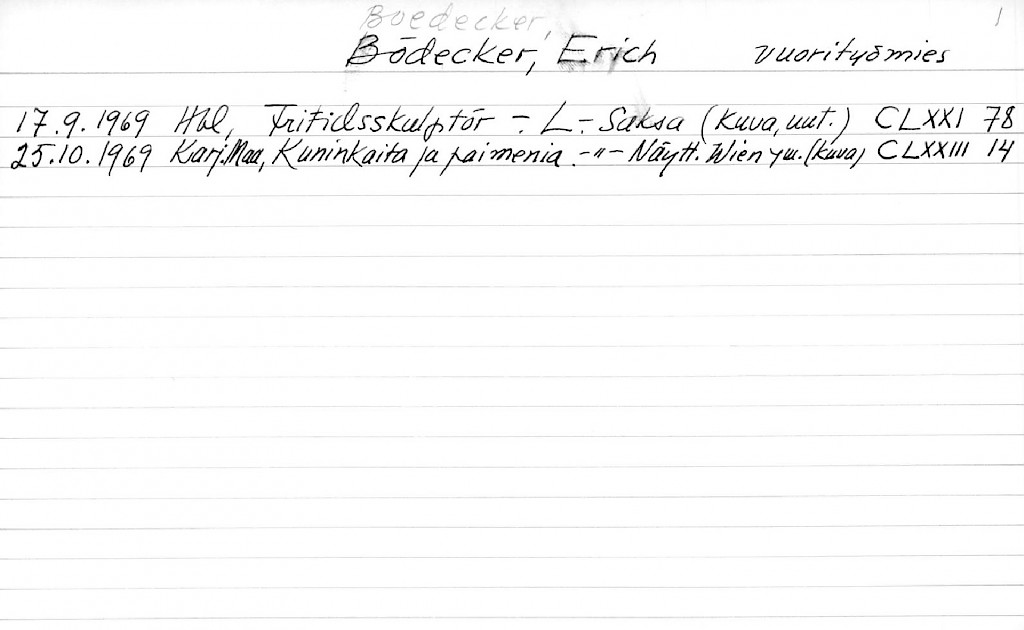 Boedecker, 1
Bödecker, Erich vuorityömies
17.9.1969 Hbl, Fritidsskulptör -:- L-:- Saksa (kuva, uut.) CLXXI 78
25.10.1969 Karj.Maa, Kuninkaita ja paimenia. -"- Näytt. Wien ym. (kuva) CLXXIII 14